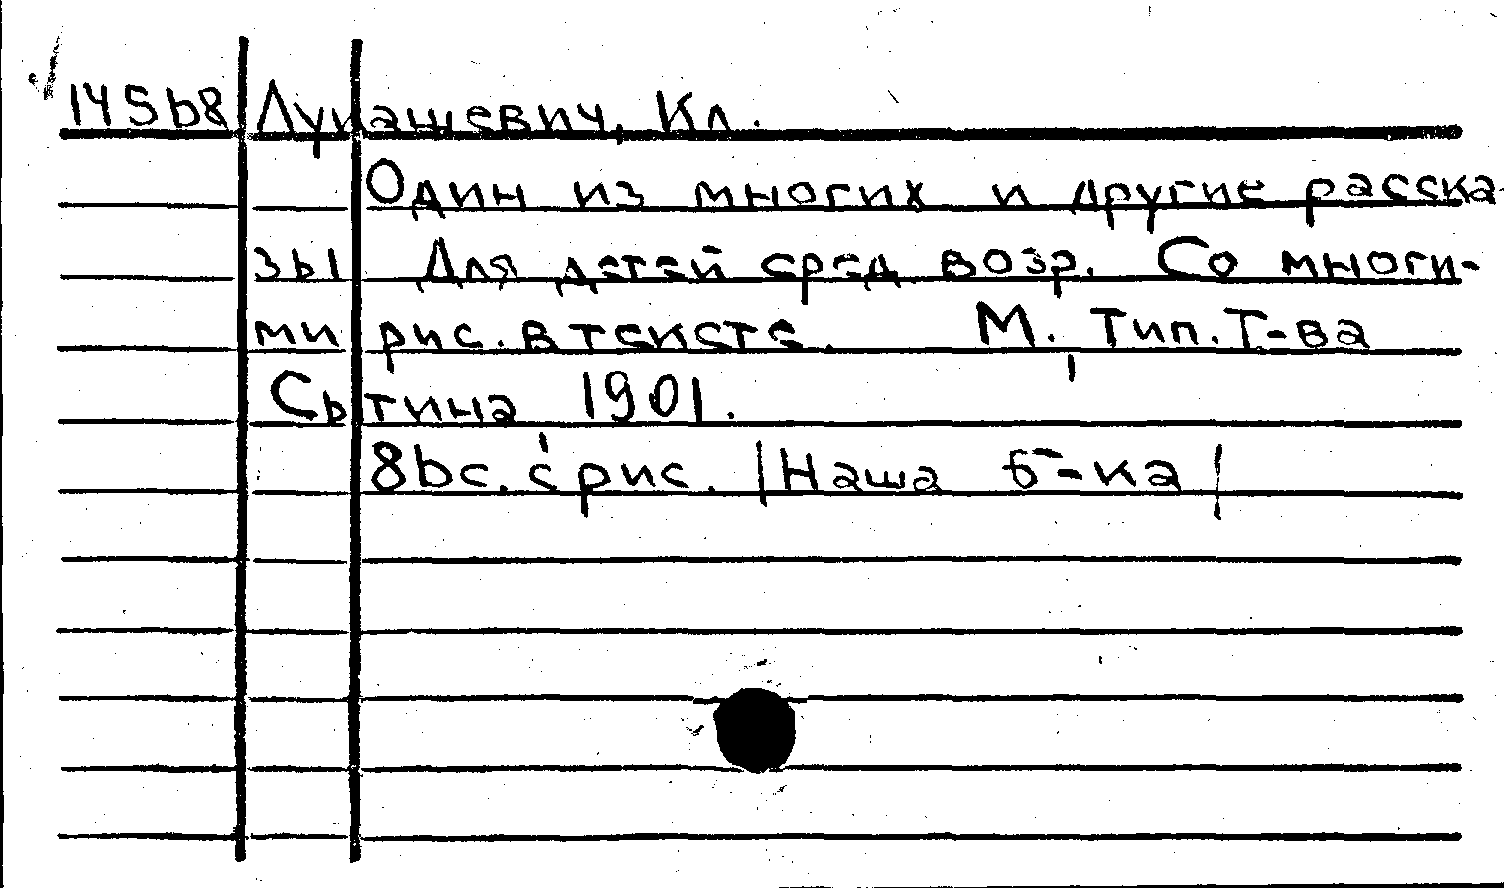 14568 Лукашевич, Кл.
Один из многих и другие расска-
зы Для детей сред возр. Со многи-
ми рис. в тексте. М. Тип. Т-ва
Сытина 1901.
86с. с рис. |Наша б-ка|